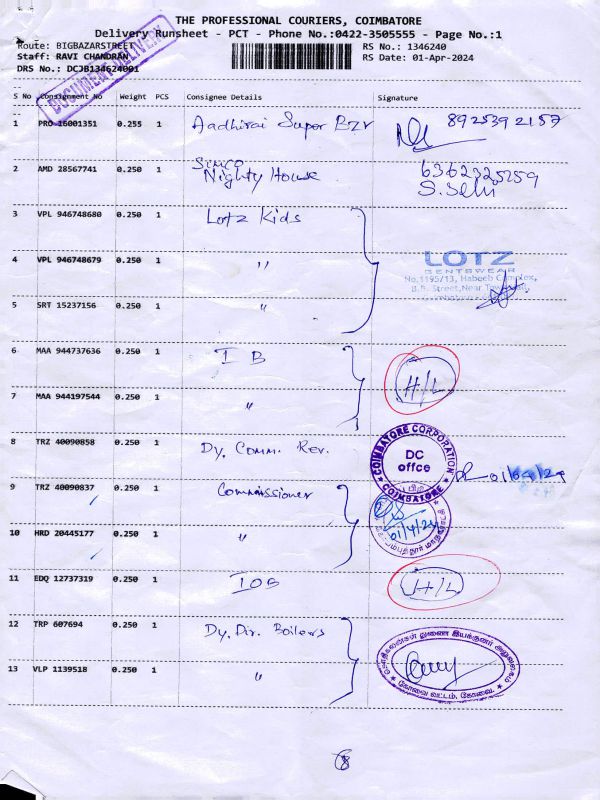 THE PROFESSIONAL COURIERS, COIMBATORE
Delivery Runsheet - PCT - Phone No.:0422-3505555 - Page No.:1
Route: BIGBAZARSTREET
RS No.: 1346240
Staff: RAVI CHANDRAN
RS Date: 01-Apr-2024
DRS No.: DCJB134624001
S No Consignment No Weight PCS Consignee Details Signature
1 PRO 16001351 0.255 1 Aadhirai Super Bzr 8925392157
2 AMD 28567741 0.250 1 Simco Nighty House 6362325259
S. Selvi
3 VPL 946748680 0.250 1 Lotz Kids
4 VPL 946748679 0.250 1 "
LOTZ
GENTSWEAR
No.1195/13, Habeeb Complex,
B.B. Street, Near Town
5 SRT 15237156 0.250 1 "
6 MAA 944737636 0.250 1 I B H/L
7 MAA 944197544 0.250 1 "
8 TRZ 40090858 0.250 1 Dy, Comm. Rev.
COIMBATORE CORPORATION
DC
offce
COIMBATORE
01/04/24
9 TRZ 40090837 0.250 1 Commissioner
01/4/24
10 HRD 20445177 0.250 1 "
11 EDQ 12737319 0.250 1 IOB H/L
12 TRP 607694 0.250 1 Dy, Dir. Boilers
13 VLP 1139518 0.250 1 "
கோவை வட்டம், கோவை.